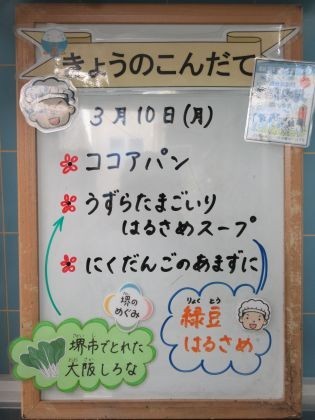 きょうのこんだて
3月10日(月)
ココアパン
うずらたまごいり
はるさめスープ
にくだんごのあまずに
堺の
めぐみ
堺市でとれた
大阪しろな
りょく とう
緑豆
はるさめ